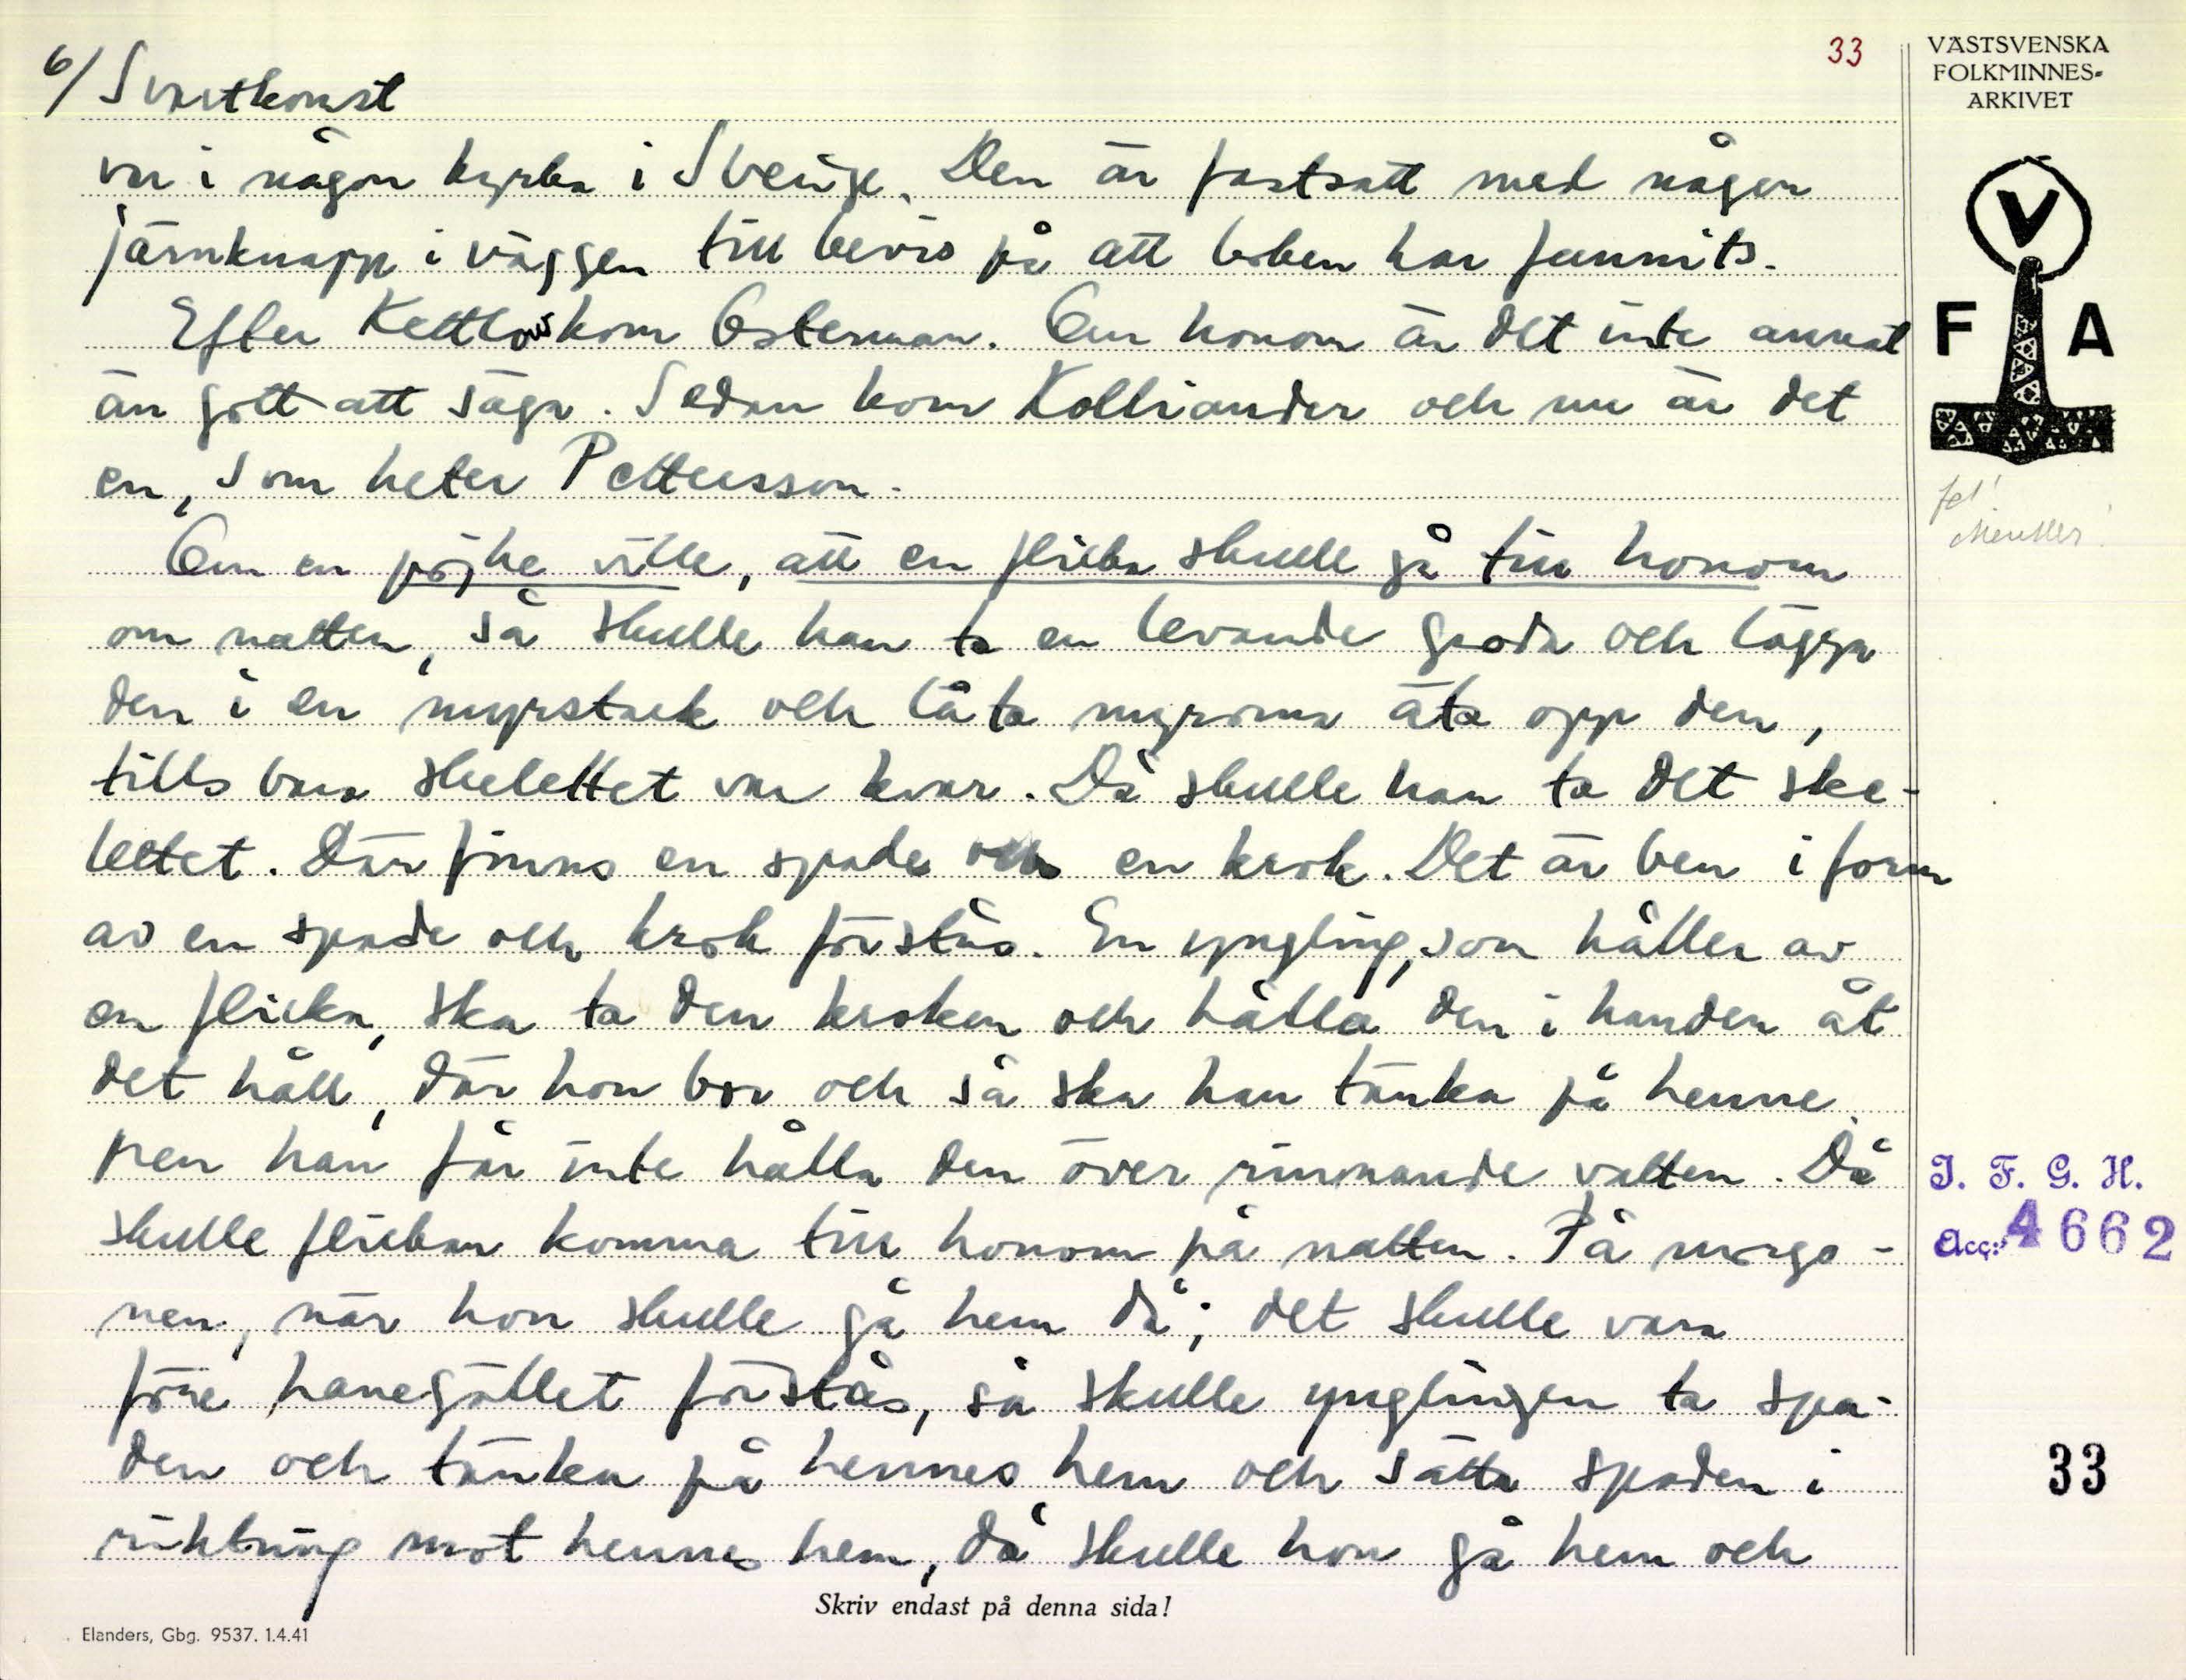 33
VÄSTSVENSKA
FOLKMINNES-
ARKIVET
6/ Svartkonst
var i någon kyrka i Sverige. Den är fastsatt med någon
järnknapp i väggen till bevis på att boken har funnits.
Efter Kettlows kom Osterman. Om honom är det inte annat
än gott att säga. Sedan kom Kolliander och nu är det
en, som heter Pettersson.
Om en pojke ville, att en flicka skulle gå till honom
om natten, så skulle han ta en levande groda och lägga
den i en myrstack och låta myrorna äta opp den,
tills bara skelettet var kvar. Då skulle han ta det ske-
lettet. Där finns en spade och en krok. Det är ben i form
av en spade och krok förstås. En yngling, som håller av
en flicka, ska ta den kroken och hålla den i handen åt
det håll, där hon bor och så ska han tänka på henne.
Men han får inte hålla den över rinnande vatten. Då
skulle flickan komma till honom på natten. På morgo-
nen, när hon skulle gå hem då; det skulle vara
före hanegället förstås, så skulle ynglingen ta spa-
den och tänka på hennes hem och sätta spaden i
riktning mot hennes hem, då skulle hon gå hem och
V
F A
fel!
I. F. G. H.
Acc: 4662
33
Skriv endast på denna sida!
Elanders, Gbg. 9537. 1.4.41